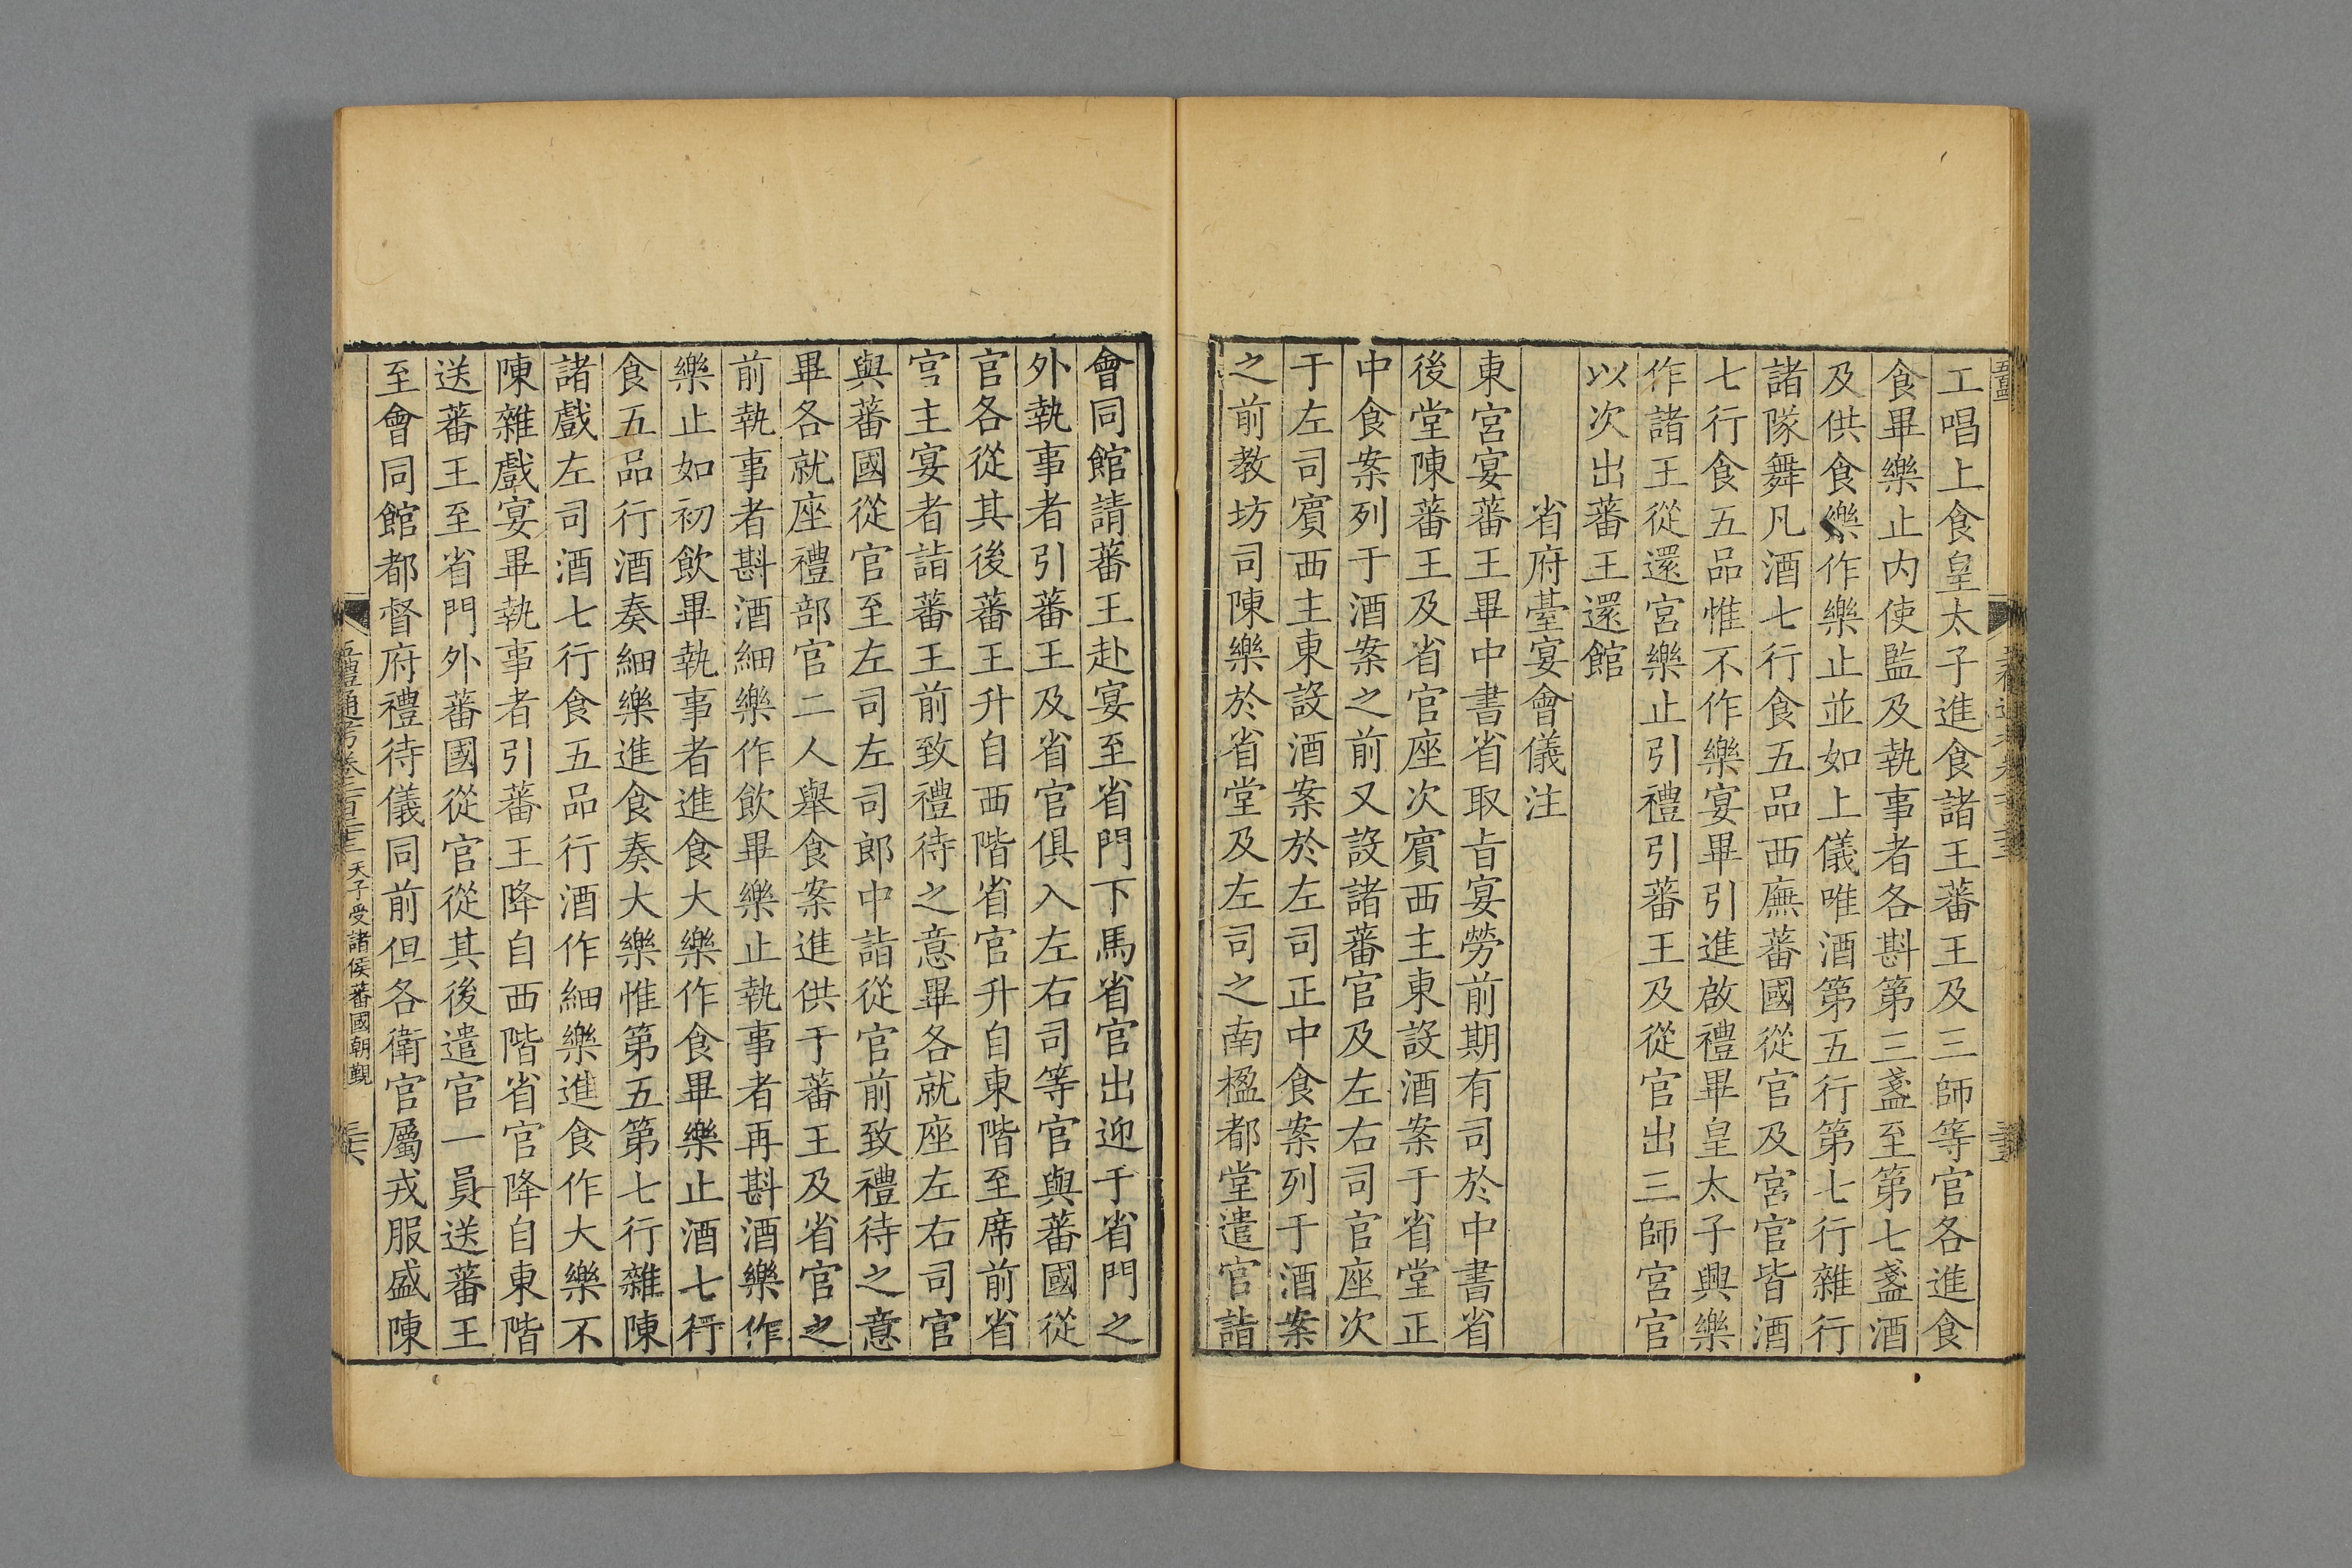 工唱上食皇太子進食諸王蕃王及三師等官各進食
食畢樂止内使監及執事者各斟第三盞至第七盞酒
及供食樂作樂止並如上儀唯酒第五行第七行雜行
諸隊舞凡酒七行食五品西廡蕃國從官及宮官皆酒
七行食五品惟不作樂宴畢引進啟禮畢皇太子興樂
作諸王從還宮樂止引禮引蕃王及從官出三師宮官
以次出蕃王還館
省府臺宴會儀注
東宮宴蕃王畢中書省取旨宴勞前期有司於中書省
後堂陳蕃王及省官座次賓西主東設酒案于省堂正
中食案列于酒案之前又設諸蕃官及左右司官座次
于左司賓西主東設酒案於左司正中食案列于酒案
之前教坊司陳樂於省堂及左司之南楹都堂遣官詣
會同館請蕃王赴宴至省門下馬省官出迎于省門之
外執事者引蕃王及省官俱入左右司等官與蕃國從
官各從其後蕃王升自西階省官升自東階至席前省
宮主宴者詣蕃王前致禮待之意畢各就座左右司官
與蕃國從官至左司左司郎中詣從官前致禮待之意
畢各就座禮部官二人舉食案進供于蕃王及省官之
前執事者斟酒細樂作飲畢樂止執事者再斟酒樂作
樂止如初飲畢執事者進食大樂作食畢樂止酒七行
食五品行酒奏細樂進食奏大樂惟第五第七行雜陳
諸戲左司酒七行食五品行酒作細樂進食作大樂不
陳雜戲宴畢執事者引蕃王降自西階省官降自東階
送蕃王至省門外蕃國從官從其後遣官一員送蕃王
至會同館都督府禮待儀同前但各衛官屬戎服盛陳
天子受諸侯蕃國朝覲